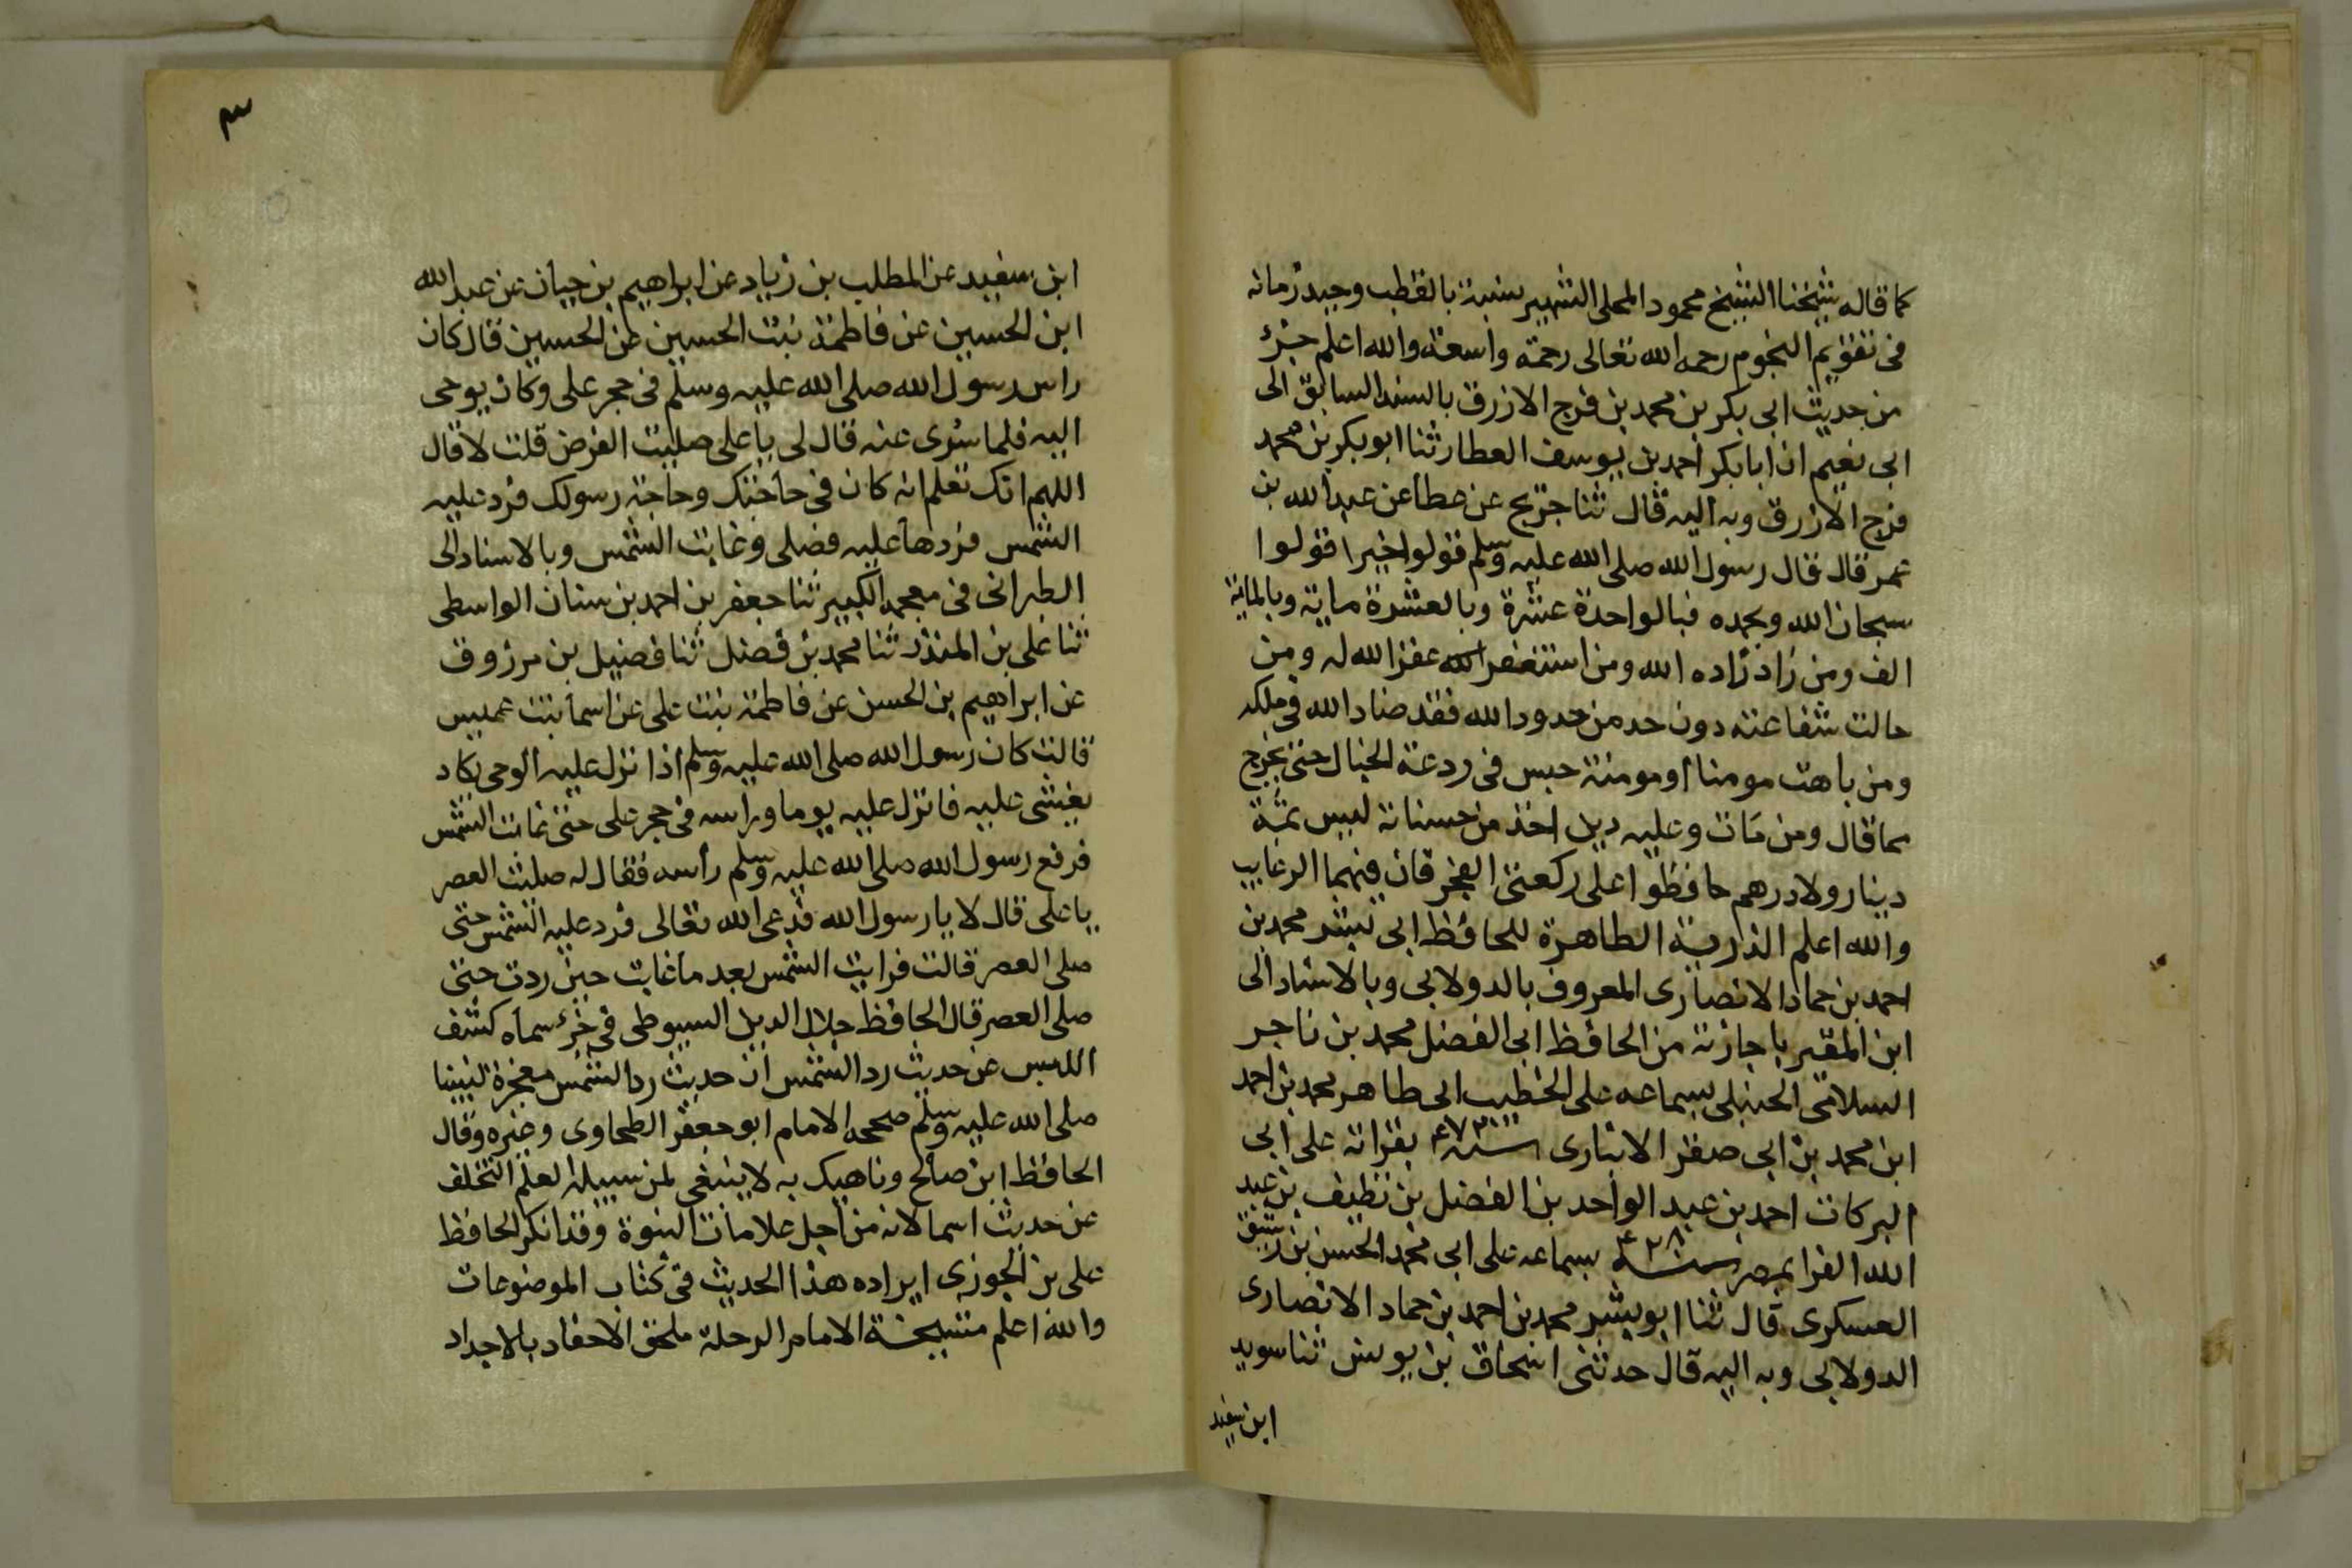 كما قاله شيخنا الشيخ محمود المحلى الشهير بنسبة بالقطب وحيد زمانه
فى تقويم النجوم رحمه الله تعالى رحمة واسعة والله اعلم جزء
من حديث ابى بكر بن محمد بن فرج الازرق بالسند السابق الى
ابى نعيم ان ابا بكر احمد بن يوسف العطار ثنا ابو بكر بن محمد
فرج الازرق وبه اليه قال ثنا جريج عن عطا عن عبد الله بن
عمر قال قال رسول الله صلى الله عليه وسلم قولوا خيرا قولوا
سبحان الله وبحمده فبالواحدة عشرة وبالعشرة ماية وبالماية
الف ومن زاد زاده الله ومن استغفر الله غفر الله له ومن
حالت شفاعته دون حد من حدود الله فقد ضاد الله فى ملكه
ومن باهت مومنا او مومنة حبس فى ردغة الخبال حتى يخرج
مما قال ومن مات وعليه دين اخذ من حسناته ليس ثمة
دينار ولا درهم حافظوا على ركعتى الفجر فان فيهما الرغايب
والله اعلم الذرية الطاهرة للحافظ ابى بشر محمد بن
احمد بن حماد الانصارى المعروف بالدولابى وبالاسناد الى
ابن المقير باجازته من الحافظ ابى الفضل محمد بن ناجر
السلامى الحنبلى بسماعه على الخطيب ابى طاهر محمد بن احمد
ابن محمد بن ابى صقر الانبارى سنة ٤٧٣ بقراته على ابى
البركات احمد بن عبد الواحد بن الفضل بن نظيف بن عبد
الله الفرا بمصر سنة ٤٢٨ بسماعه على ابى محمد الحسن بن رشيق
العسكرى قال ثنا ابو بشر محمد بن احمد بن حماد الانصارى
الدولابى وبه اليه قال حدثنى اسحاق بن يونس ثنا سويد
ابن سعيد
٣
ابن سعيد عن المطلب بن زياد عن ابراهيم بن حيان عن عبد الله
ابن الحسين عن فاطمة بنت الحسين عن الحسين قال كان
راس رسول الله صلى الله عليه وسلم فى حجر على وكان يوحى
اليه فلما سرى عنه قال لى يا على صليت الفرض قلت لا قال
اللهم انك تعلم انه كان فى حاجتك وحاجة رسولك فرد عليه
الشمس فردها عليه فصلى وغابت الشمس وبالاسناد الى
الطبرانى فى معجمه الكبير ثنا جعفر بن احمد بن سنان الواسطى
ثنا على بن المنذر ثنا محمد بن فضل ثنا فضيل بن مرزوق
عن ابراهيم بن الحسن عن فاطمة بنت على عن اسما بنت عميس
قالت كان رسول الله صلى الله عليه وسلم اذا نزل عليه الوحى يكاد
يغشى عليه فانزل عليه يوما وراسه فى حجر على حتى غابت الشمس
فرفع رسول الله صلى الله عليه وسلم رأسه فقال له صليت العصر
يا على قال لا يا رسول الله فدعى الله تعالى فرد عليه الشمس حتى
صلى العصر قالت فرايت الشمس بعد ما غابت حين ردت حتى
صلى العصر قال الحافظ جلال الدين السيوطى فى جزء سماه كشف
اللبس عن حديث رد الشمس ان حديث رد الشمس معجزة لنبينا
صلى الله عليه وسلم صححه الامام ابو جعفر الطحاوى وغيره وقال
الحافظ ابن صالح وناهيك به لا ينبغى لمن سبيله العلم التخلف
عن حديث اسما لانه من اجل علامات النبوة وقد انكر الحافظ
على بن الجوزى ايراده هذا الحديث فى كتاب الموضوعات
والله اعلم مشيخة الامام الرحلة ملحق الاحفاد بالاجداد